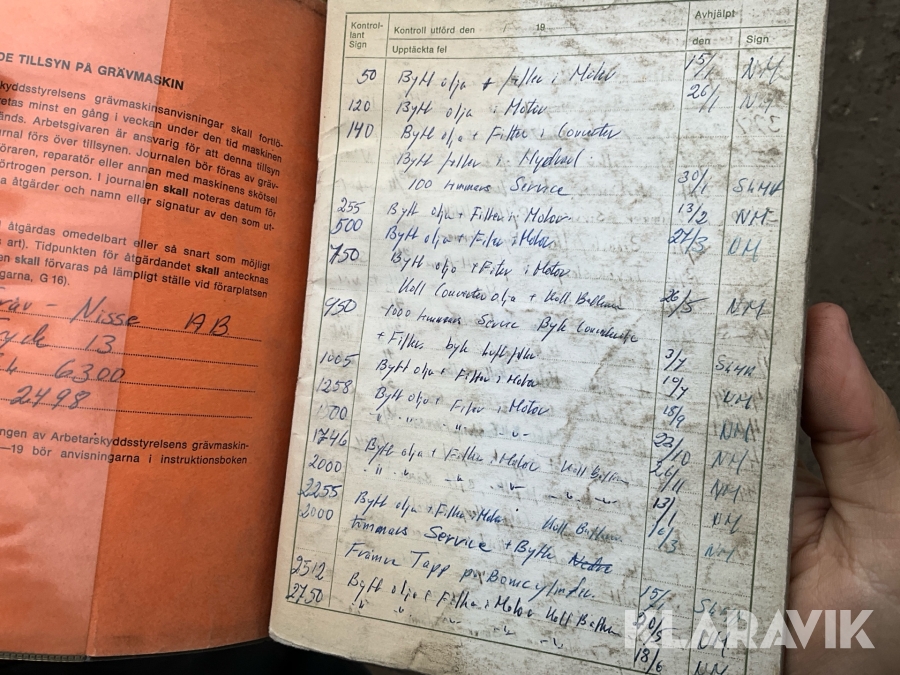 DE TILLSYN PÅ GRÄVMASKIN
kyddsstyrelsens grävmaskinsanvisningar skall fortlö-
etas minst en gång i veckan under den tid maskinen
änds. Arbetsgivaren är ansvarig för att denna tillsyn
urnal förs över tillsynen. Journalen bör föras av gräv-
öraren, reparatör eller annan med maskinens skötsel
örtrogen person. I journalen skall noteras datum för
a åtgärder och namn eller signatur av den som ut-
åtgärdas omedelbart eller så snart som möjligt
s art). Tidpunkten för åtgärdandet skall antecknas
en skall förvaras på lämpligt ställe vid förarplatsen
garna, G 16).
räv- Nisse AB
13
6300
2498
ngen av Arbetarskyddsstyrelsens grävmaskin-
—19 bör anvisningarna i instruktionsboken
Kontrol-
lant
Sign
Kontroll utförd den 19
Upptäckta fel
Avhjälpt
den Sign
50 Bytt olja + filter i Motor 15/1 NM
120 Bytt olja i Motor 26/1 NM
140 Bytt olja + Filter i Converter
Bytt filter i Hydraul.
100 timmars Service 30/1
255 Bytt olja + Filter i Motor 13/2 NM
500 Bytt olja + Filter i Motor 27/3 NM
750 Bytt olja + Filter i Motor
Koll Converter olja + Koll 26/5 NM
950 1000 timmars Service Byte
+ Filter byte luft filter 3/7
1005 Bytt olja + Filter i Motor 19/7 NM
1258 Bytt olja + Filter i Motor 15/9 NM
1500 " " " 23/10 NM
1746 Bytt olja + Filter i Motor Koll 26/11 NM
2000 " " " " " 13/1 NM
2255 Bytt olja + Filter i Motor Koll /3 NM
2000 timmars Service + Bytte
Främre Tapp på Bomcylinder. 15/
2512 Bytt olja + Filter i Motor Koll 20/5 NM
2750 " " " " " 18/6 NM
KLARAVIK